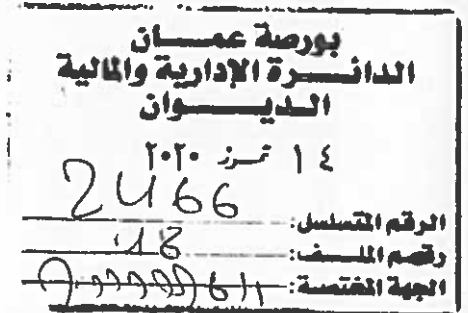 بورصة عمسان
الدائسرة الإدارية والمالية
الديسوان
١٤ تموز ٢٠٢٠
2466
الرقم المتسلسل:
رقم الملف:
الجهة المختصة: